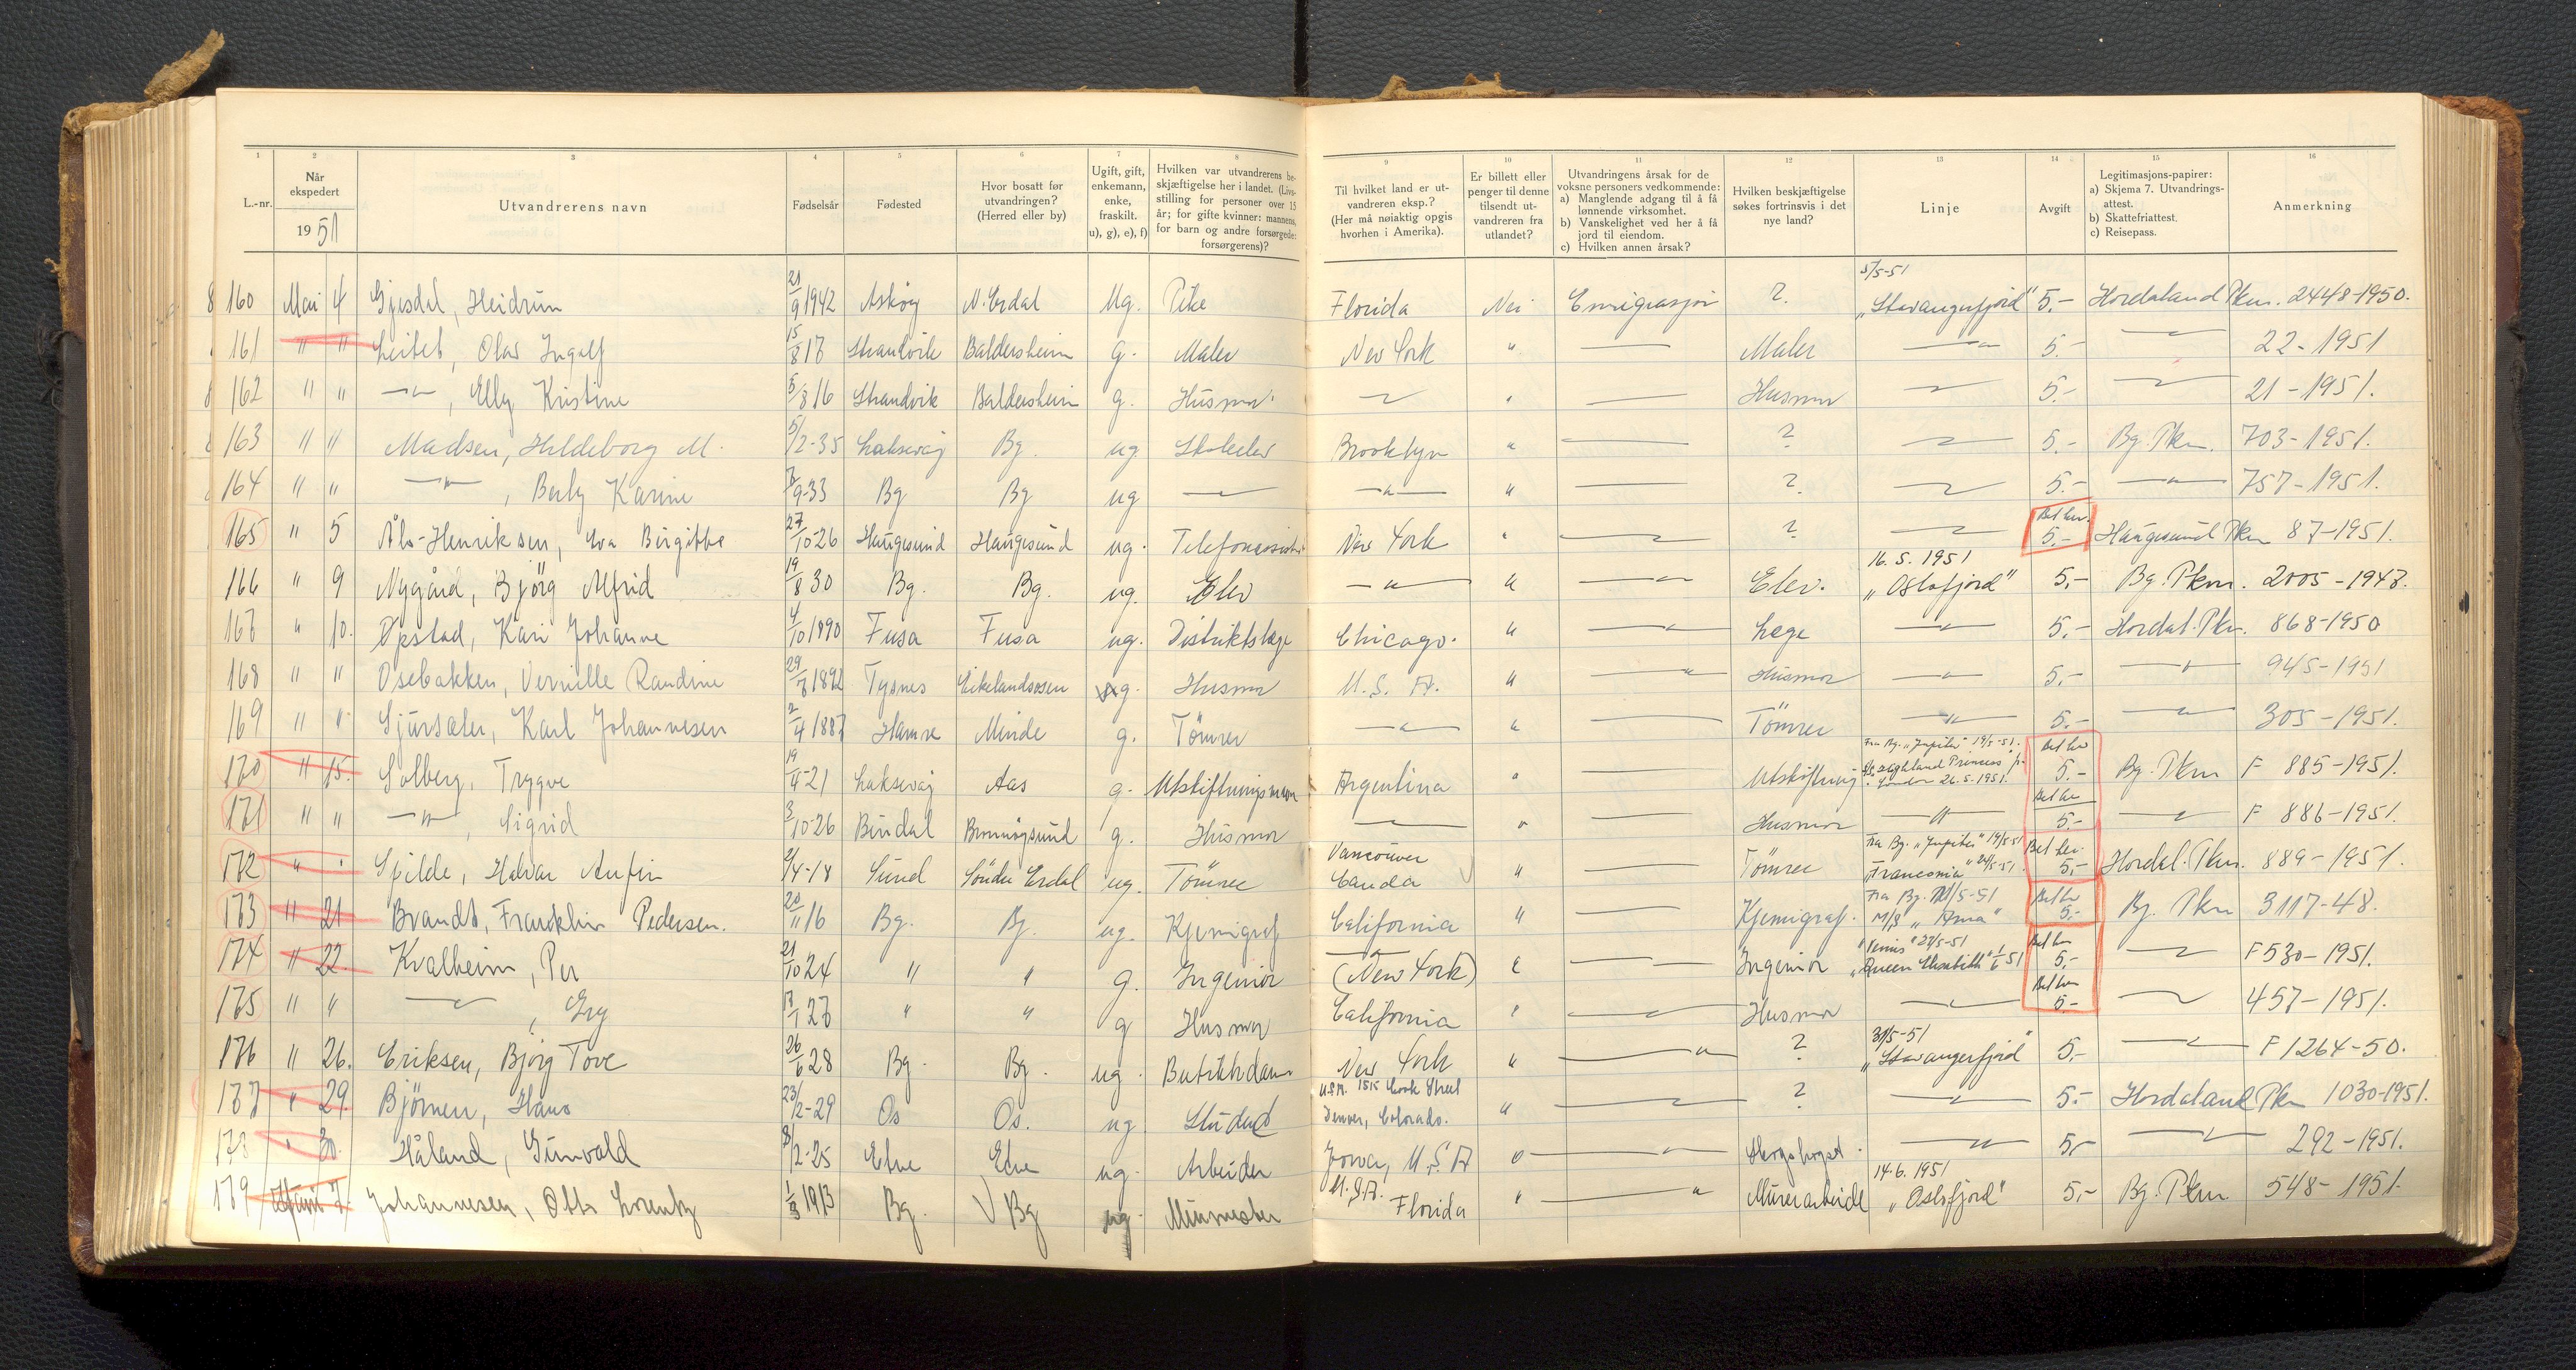 1 2 3 4 5 6 7 8 9 10 11 12 13 14 15 16
L.-nr. | Når ekspedert 1951 | Utvandrerens navn | Fødselsår | Fødested | Hvor bosatt før utvandringen? (Herred eller by) | Ugift, gift, enkemann, enke, fraskilt. u), g), e), f) | Hvilken var utvandrerens beskjæftigelse her i landet. (Livsstilling for personer over 15 år; for gifte kvinner: mannens, for barn og andre forsørgede: forsørgerens)? | Til hvilket land er utvandreren eksp.? (Her må nøiaktig opgis hvorhen i Amerika). | Er billett eller penger til denne tilsendt utvandreren fra utlandet? | Utvandringens årsak for de voksne personers vedkommende: a) Manglende adgang til å få lønnende virksomhet. b) Vanskelighet ved her å få jord til eiendom. c) Hvilken annen årsak? | Hvilken beskjæftigelse søkes fortrinsvis i det nye land? | Linje | Avgift | Legitimasjons-papirer: a) Skjema 7. Utvandringsattest. b) Skattefriattest. c) Reisepass. | Anmerkning
160 Mai 4 Gjesdal, Heidrun 21/9 1942 Askøy N. Erdal Ug. Pike Florida Nei Emigrasjon ? 5/5-51 „Stavangerfjord" 5.- Hordaland Pkm. 2448-1950.
161 " " Leitet, Olav Ingolf 15/8 17 Strandvik Baldersheim g. Maler New York " — Maler —"— 5.- —"— 22-1951
162 " " —"—, Elly Kristine 5/8 16 Strandvik Baldersheim g. Husmor —"— " — Husmor —"— 5.- —"— 21-1951.
163 " " Madsen, Hildeborg M. 5/2-35 Laksevåg Bg. ug. Skoleelev Brooklyn " — ? —"— 5.- Bg. Pkm. 703-1951.
164 " " —"—, Karine 9-33 Bg Bg ug — —"— " — ? —"— 5.- —"— 757-1951.
165 " 5 Åls-Henriksen, Eva Birgitte 27/10-26 Haugesund Haugesund ug. New York " —"— ? —"— Bet her. 5.- Haugesund Pkm 87-1951.
166 " 9 Nygård, Bjørg Alfrid 19/8 30 Bg. Bg. ug. Elev —"— " —"— Elev. 16.5.1951 „Oslofjord" 5,- Bg. Pkm. 2005-1948.
167 " 10. Opstad, Kari Johanne 4/10 1890 Fusa Fusa ug. Distriktslege Chicago. " —"— Lege —"— 5.- Hordal. Pkm. 868-1950
168 " " Osebakken, Randine 29/8 1892 Tysnes Eikelandsosen g. Husmor U.S.A. " —"— Husmor —"— 5.- —"— 945-1951
169 " " Sjursæter, Karl Johannesen 2/4 1887 Hamre Minde g. Tömrer —"— " — Tömrer —"— 5.- —"— 305-1951.
170 " 15. Solberg, Trygve 19/4-21 Laksevåg Aas g. Utskiftningsmann Argentina " — Utskiftning Fra Bg. „Jupiter" 19/5-51. S/S „Highland Princess" fr. London 26.5.1951. Bet her 5.- Bg. Pkm F 885-1951.
171 " " —"—, Sigrid 3/10-26 Bindal Brønnøysund g. Husmor — " — Husmor —"— Bet her 5.- —"— F 886-1951.
172 " " Spilde, Halvar Anfin 2/4-18 Sund Söndre Erdal ug. Tömrer Vancouver Canda " — Tömrer Fra Bg. „Jupiter" 19/5-51 „Franconia" 24/5-51. Bet her 5,- Hordal. Pkm. 889-1951.
173 " 21 Brandt, Franklin Pedersen. 20/11 16 Bg. Bg. ug. Kjemigraf California " — Kjemigraf. Fra Bg. 21/5-51 M/S „Anna" Bet her 5.- Bg. Pkm 3117-48.
174 " 22. Kvalheim, Per 21/10 24 " " g. Ingeniör —"— (New York) " — Ingeniör "Venus" 27/5-51 „Queen Elisabeth" 1/6 51 Bet her 5.- —"— F 530-1951.
175 " " —"—, 13/1 27 " " g Husmor California " —"— Husmor — Bet her 5.- —"— 457-1951.
176 " 26. Eriksen, Bjørg Tove 26/6 28 Bg. Bg. ug. Butikkdame New York " —"— ? 31/5-51 „Stavangerfjord" 5.- —"— F 1264-50.
177 " 29. Björnen, Hans 23/2-29 Os Os. ug Student U.S.A. 1515 Cook Street Denver, Colorado. " —"— ? —"— 5.- Hordaland Pkm 1030-1951.
178 " 30. Håland, Gunvald 8/2-25 Etne Etne ug. Arbeider Jowa, U.S.A " —"— Skogshogst. —"— 5,- —"— 292-1951.
179 Johannesen, Otto Lorentz 1/3 1913 Bg. Bg ug. Murmester U.S.A. Florida " —"— Murerarbeide 14.6.1951 „Oslofjord" 5,- Bg. Pkm 548-1951.